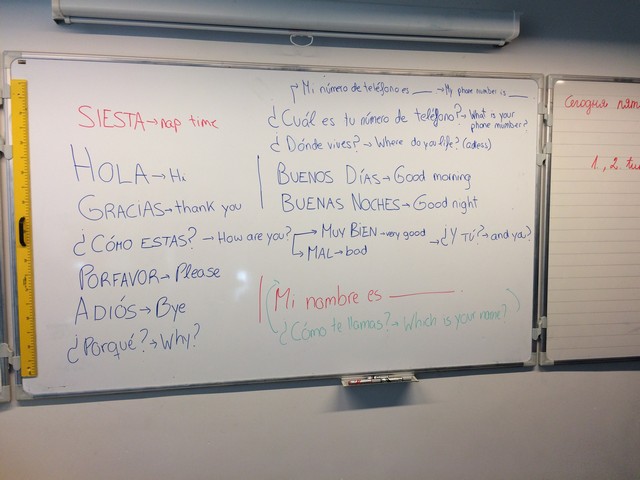 SIESTA→nap time
HOLA→Hi
GRACIAS→thank you
¿CÓMO ESTAS?→How are you?
→MUY BIEN→very good
→MAL→bad
→¿Y TÚ?→and you?
PORFAVOR→Please
ADIÓS→Bye
¿Porqué?→Why?
→Mi número de teléfono es ____→My phone number is ____
¿Cuál es tu número de teléfono?→What is your
phone number?
¿Dónde vives?→Where do you life? (adress)
BUENOS DÍAS→Good morning
BUENAS NOCHES→Good night
Mi nombre es ________.
¿Cómo te llamas?→Which is your name?
Сегодня
1., 2.